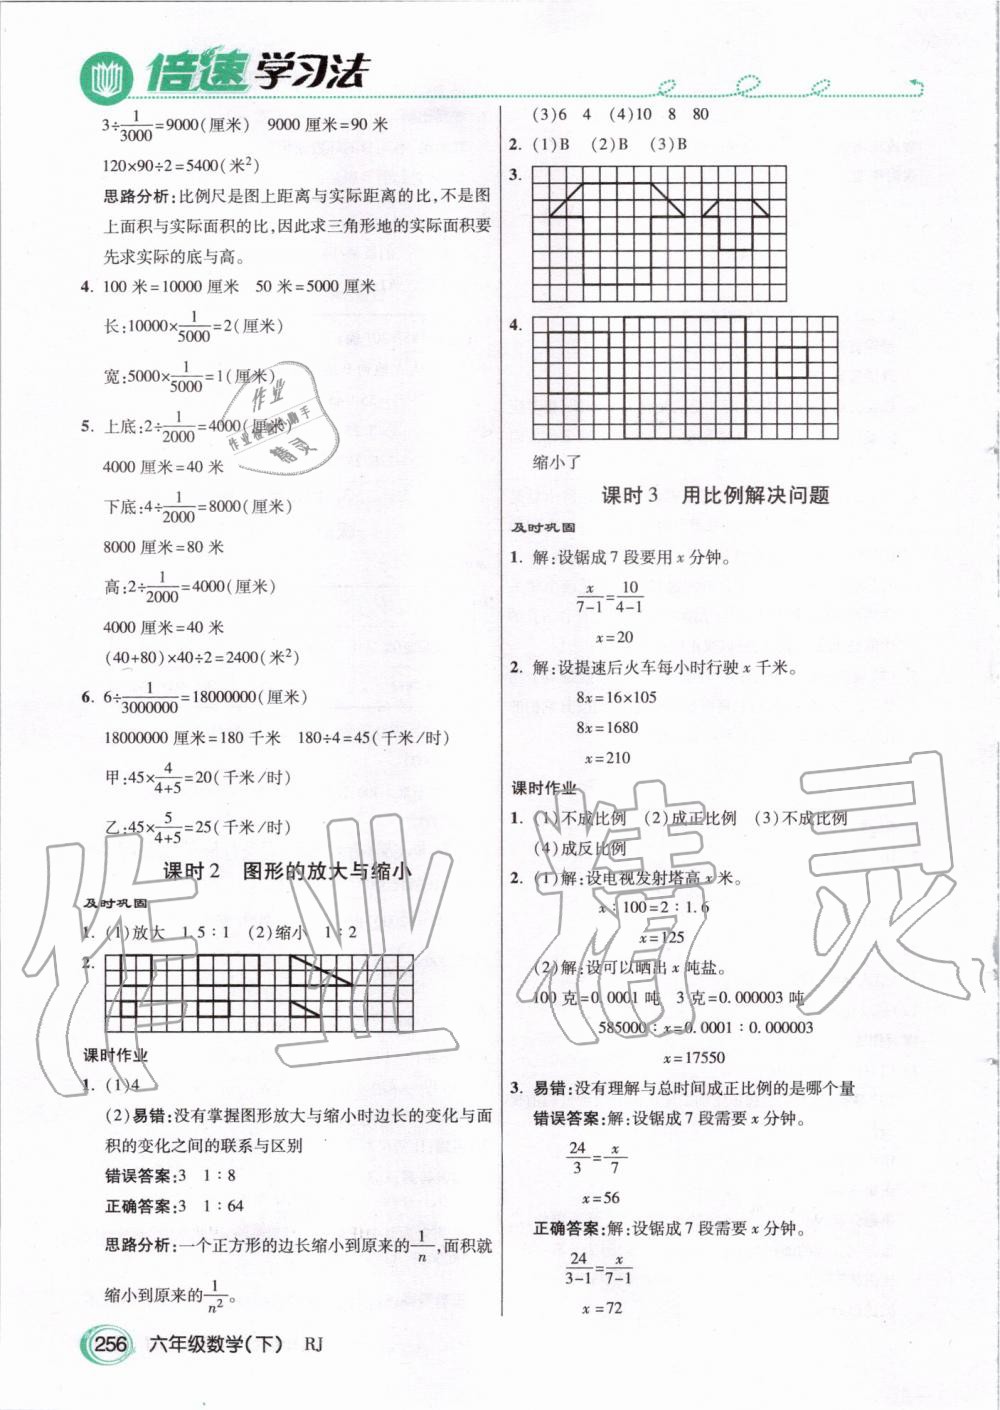 倍速学习法
3÷1/3000=9000(厘米) 9000 厘米=90 米
120×90÷2=5400(米²)
思路分析:比例尺是图上距离与实际距离的比,不是图
上面积与实际面积的比,因此求三角形地的实际面积要
先求实际的底与高。
4. 100 米=10000 厘米 50 米=5000 厘米
长:10000×1/5000=2(厘米)
宽:5000×1/5000=1(厘米)
5. 上底:2÷1/2000=4000(厘米)
4000 厘米=40 米
下底:4÷1/2000=8000(厘米)
8000 厘米=80 米
高:2÷1/2000=4000(厘米)
4000 厘米=40 米
(40+80)×40÷2=2400(米²)
6. 6÷1/3000000=18000000(厘米)
18000000 厘米=180 千米 180÷4=45(千米/时)
甲:45×4/4+5=20(千米/时)
乙:45×5/4+5=25(千米/时)
课时 2 图形的放大与缩小
及时巩固
1. (1)放大 1.5∶1 (2)缩小 1∶2
2.
课时作业
1. (1)4
(2)易错:没有掌握图形放大与缩小时边长的变化与面
积的变化之间的联系与区别
错误答案:3 1∶8
正确答案:3 1∶64
思路分析:一个正方形的边长缩小到原来的1/n,面积就
缩小到原来的1/n²。
(3)6 4 (4)10 8 80
2. (1)B (2)B (3)B
3.
4.
缩小了
课时 3 用比例解决问题
及时巩固
1. 解:设锯成 7 段要用 x 分钟。
x/7-1=10/4-1
x=20
2. 解:设提速后火车每小时行驶 x 千米。
8x=16×105
8x=1680
x=210
课时作业
1. (1)不成比例 (2)成正比例 (3)不成比例
(4)成反比例
2. (1)解:设电视发射塔高 x 米。
x∶100=2∶1.6
x=125
(2)解:设可以晒出 x 吨盐。
100 克=0.0001 吨 3 克=0.000003 吨
585000∶x=0.0001∶0.000003
x=17550
3. 易错:没有理解与总时间成正比例的是哪个量
错误答案:解:设锯成 7 段需要 x 分钟。
24/3=x/7
x=56
正确答案:解:设锯成 7 段需要 x 分钟。
24/3-1=x/7-1
x=72
256 六年级数学(下) RJ
作业精灵
作业
作业检查小助手
精灵